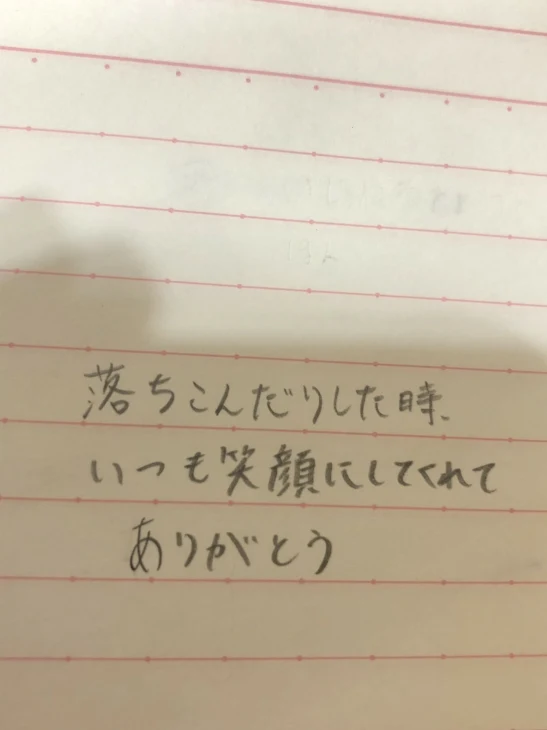 落ちこんだりした時、
いつも笑顔にしてくれて
ありがとう